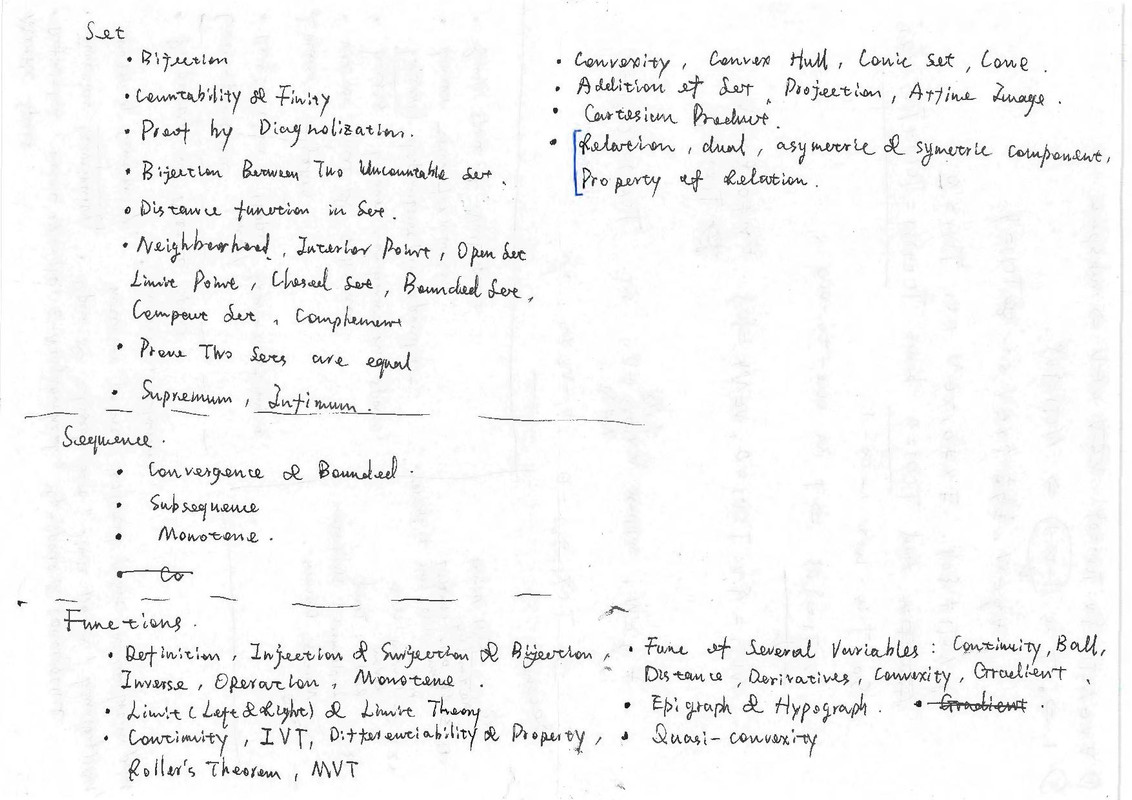 Set
• Bijection
• Countability & Finity
• Proof by Diagnolization.
• Bijection Between Two Uncountable Set.
• Distance function in Set.
• Neighborhood, Interior Point, Open Set
Limit Point, Closed Set, Bounded Set,
Compact Set, Complement
• Prove Two Sets are equal
• Supremum, Infimum.
• Convexity, Convex Hull, Conic Set, Cone.
• Addition of Set, Projection, Affine Image.
• Cartesian Product.
• Relation, dual, asymetric & symetric component,
Property of Relation.
Sequence.
• Convergence & Bounded.
• Subsequence
• Monotone.
• Co
Functions.
• Definition, Injection & Surjection & Bijection,
Inverse, Operation, Monotone.
• Limit (Left & Right) & Limit Theory
• Continuity, IVT, Differentiability & Property,
Roller's Theorem, MVT
• Func of Several Variables: Continuity, Ball,
Distance, Derivatives, Convexity, Gradient.
• Epigraph & Hypograph. • Gradient.
• Quasi-convexity